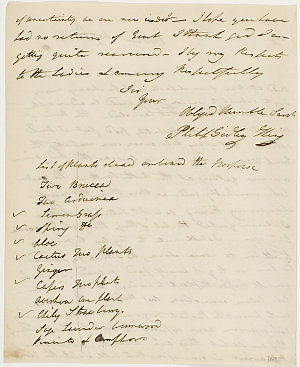 of curiosity as on our credit – I hope you have
had no returns of Gout I thank god I am
getting quite recovered – I beg my Respects
to the Ladies & am very Respectfully
Sir
Your
Obliged Humble Servt
Philip Gidley King
List of Plants dead onboard the Porpoise
Two Brucea
Two
✓ Lemon Grass
✓ Spring
✓ Aloe
✓ Cactus Two Plants
Ginger
✓ Capers Two plants
one plant
✓ Chily Strawberry
Sage Lavender
& Camphor